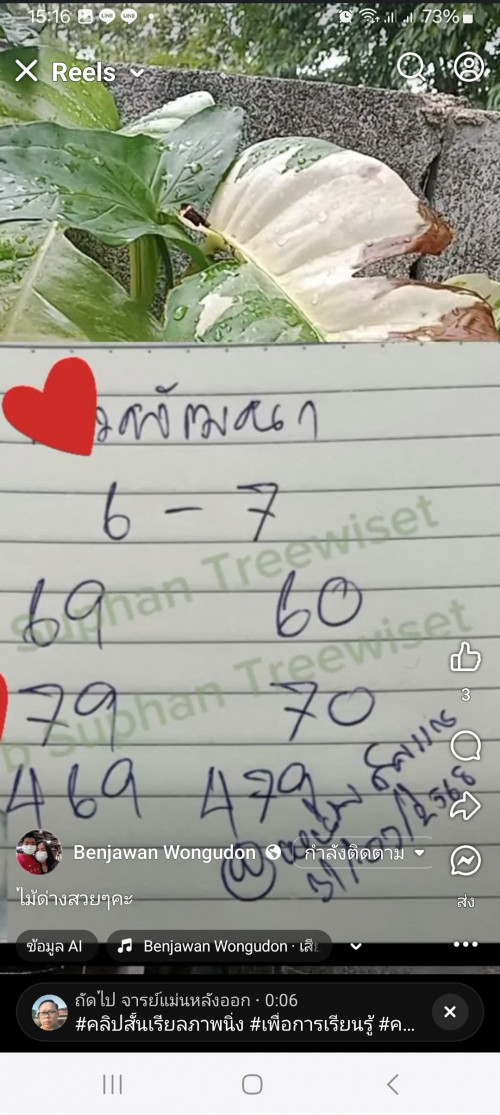 15:16 73%
Reels
6 - 7
Suphan Treewiset
69 60
b Suphan Treewiset
79 70
3
469 479
Benjawan Wongudon กำลังติดตาม
ไม้ด่างสวยๆคะ
ส่ง
ข้อมูล AI Benjawan Wongudon · เสี
ถัดไป จารย์แม่นหลังออก · 0:06
#คลิปสั้นเรียลภาพนิ่ง #เพื่อการเรียนรู้ #ค...